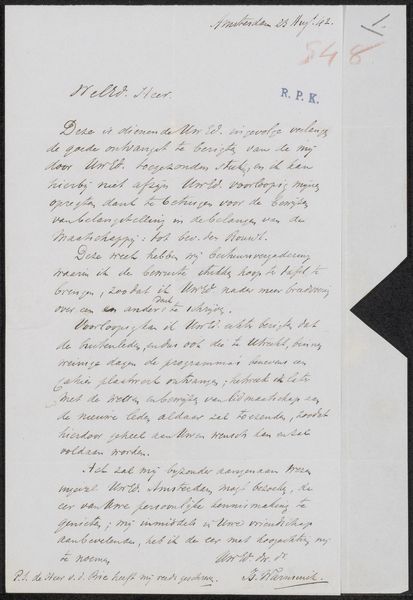 Amsterdam 23 Aug. 42.
548
R. P. K.
WelEd. Heer.
Deze is dienende UwEd. ingevolge verlangen
de goede ontvangst te berigten van de mij
door UwEd. toegezonden stukken, en ik kan
hierbij niet afzijn UwEd. voorloopig mijnen
opregten dank te betuigen voor de bewijzen
van belangstelling in de belangen van de
Maatschappij: tot bev. der Bouwk.
Deze week hebben wij bestuursvergadering
waarin ik de bewuste stukken hoop ter tafel te
brengen, zoodat ik UwEd. nader meer breedvoerig
over een en ander zal te schrijven.
Voorloopig kan ik UwEd. echter berigten dat
de buitenleden, en dus ook die te Utrecht, binnen
weinige dagen de programma's benevens een
cahier plaatwerk ontvangen; hetwelk ik later
met de wetten en bewijzen van lidmaatschap aan
de nieuwe leden aldaar zal toezenden, zoodat
hierdoor geheel aan Uwen wensch kan en zal
voldaan worden.
Het zal mij bijzonder aangenaam wezen
ingeval UwEd. Amsterdam mogt bezoeken, de
eer van Uwe persoonlijke kennismaking te
genieten; mij inmiddels in Uwe vriendschap
aanbevelende, heb ik de eer met hoogachting mij
te noemen
UwEd. Dw. Dr.
B. Warnsinck.
P.S. de Heer heeft mij reeds geschreven.